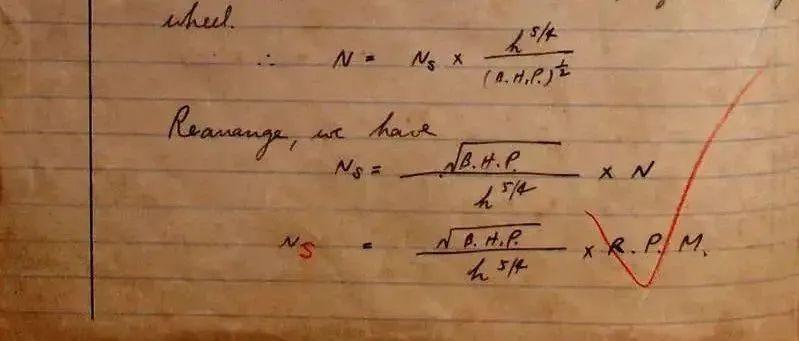 wheel.
∴ N = Ns × h^5/4 / (B.H.P.)^1/2
Rearrange, we have
Ns = √B.H.P. / h^5/4 × N
Ns = √B.H.P. / h^5/4 × R.P.M.